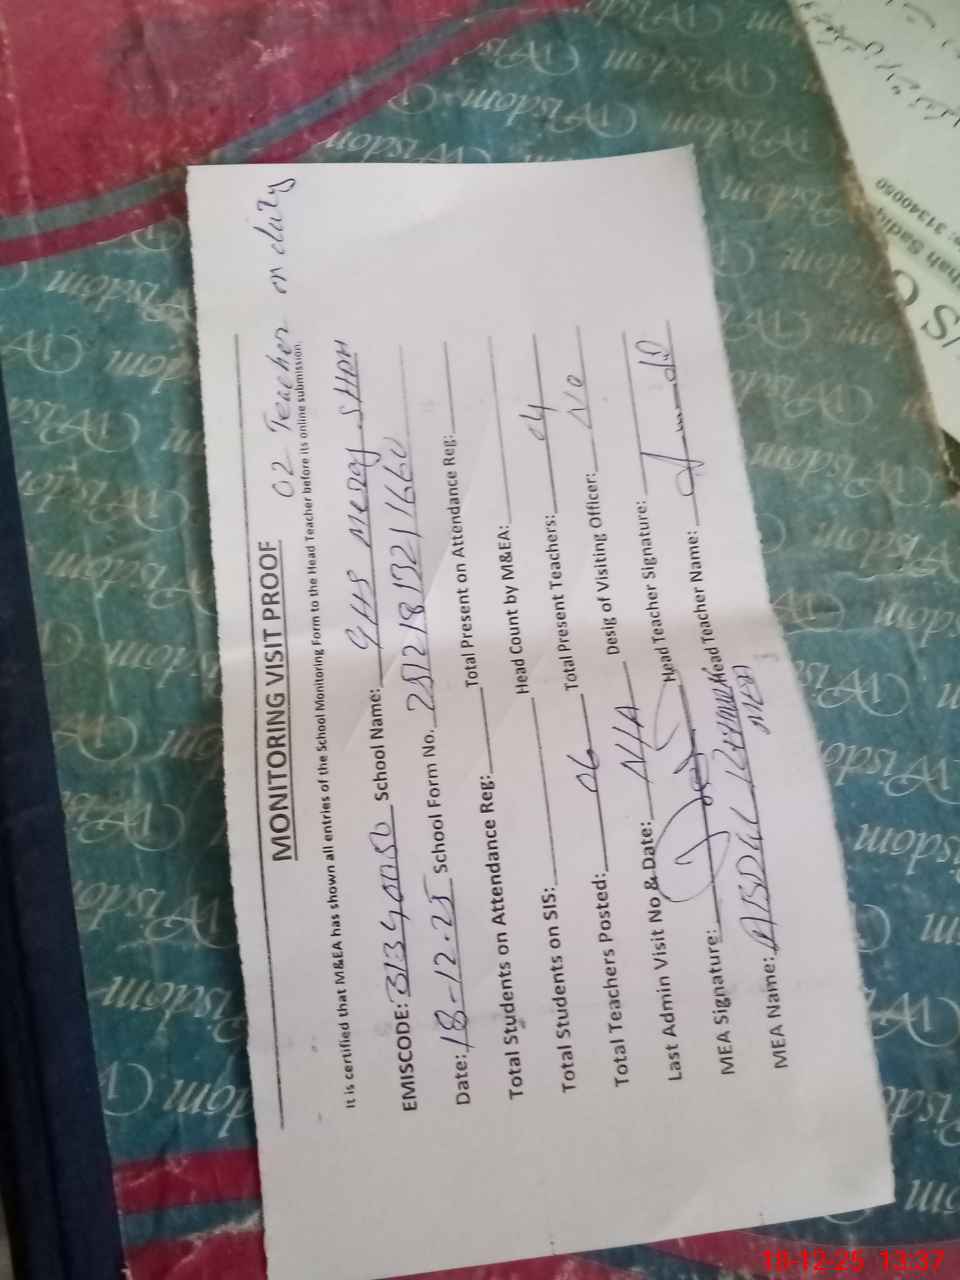 MONITORING VISIT PROOF
02 Teacher on duty
It is certified that M&EA has shown all entries of the School Monitoring Form to the Head Teacher before its online submission.
EMISCODE: 31340050 School Name: GHS Meraj
Date: 18-12-25 School Form No. 251218132111660
Total Students on Attendance Reg: Total Present on Attendance Reg:
Total Students on SIS: Head Count by M&EA:
Total Teachers Posted: 06 Total Present Teachers: 04
Last Admin Visit No & Date: N/A Desig of Visiting Officer: No
MEA Signature: Head Teacher Signature:
MEA Name: ABDUL Head Teacher Name:
MEA
Wisdom
31340050
18-12-25 13:37